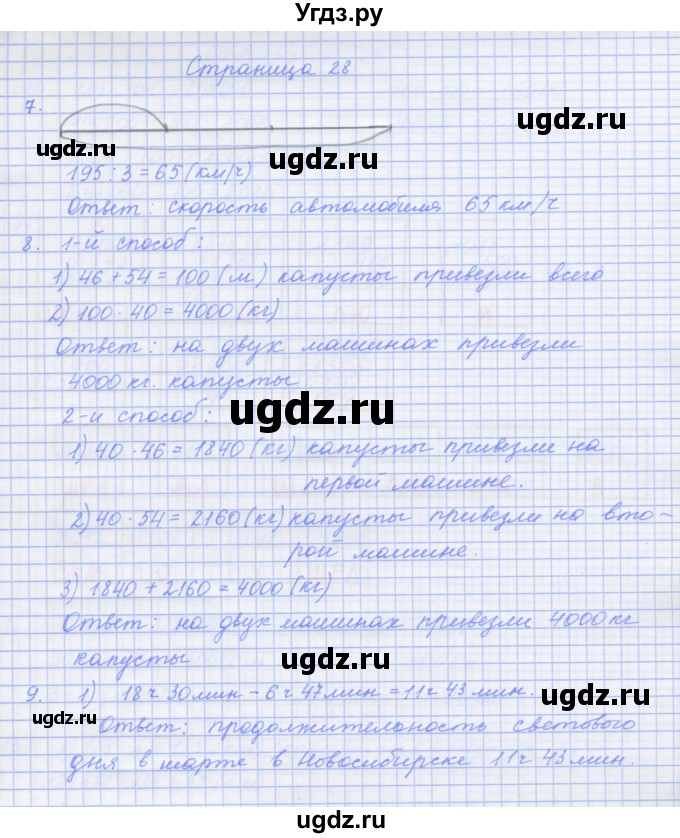 Угдз.ру
Страница 28
7.
ugdz.ru
ugdz.ru
ugdz.ru
195 : 3 = 65 (км/ч)
Ответ: скорость автомобиля 65 км/ч
8. 1-й способ:
1) 46 + 54 = 100 (м) капусты привезли всего
2) 100 · 40 = 4000 (кг)
Ответ: на двух машинах привезли
4000 кг. капусты
ugdz.ru
2-й способ:
1) 40 · 46 = 1840 (кг) капусты привезли на
первой машине.
2) 40 · 54 = 2160 (кг) капусты привезли на вто-
рой машине.
3) 1840 + 2160 = 4000 (кг)
Ответ: на двух машинах привезли 4000 кг
капусты
ugdz.ru
9. 1) 18 ч 30 мин - 6 ч 47 мин = 11 ч 43 мин.
Ответ: продолжительность светового
ugdz.ru
ugdz.ru
дня в марте в Новосибирске 11 ч 43 мин.
ugdz.ru